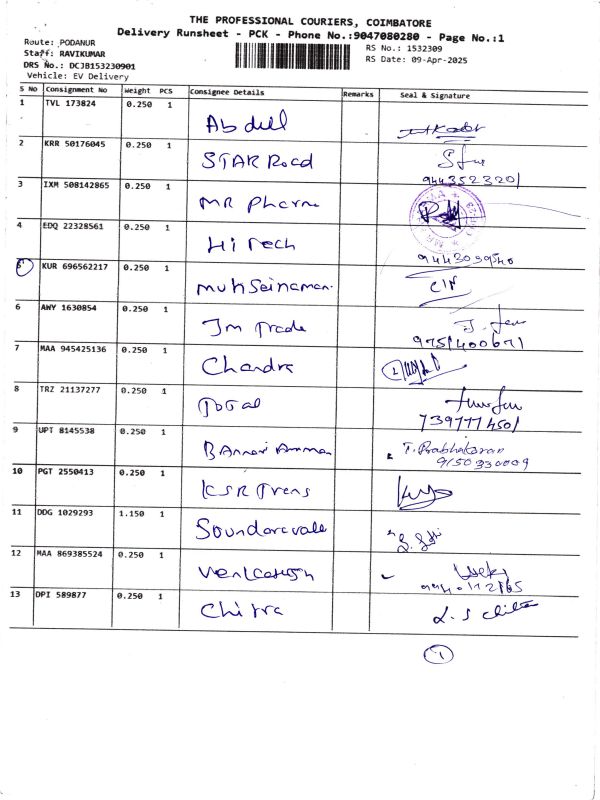 THE PROFESSIONAL COURIERS, COIMBATORE
Delivery Runsheet - PCK - Phone No.:9047080280 - Page No.:1
Route: PODANUR
RS No.: 1532309
Staff: RAVIKUMAR
RS Date: 09-Apr-2025
DRS No.: DCJB153230901
Vehicle: EV Delivery
S No Consignment No Weight PCS Consignee Details Remarks Seal & Signature
1 TVL 173824 0.250 1 Abdul
2 KRR 50176045 0.250 1 STAR Road
944352320/
3 IXM 508142865 0.250 1 MR Pharma
4 EDQ 22328561 0.250 1 Hi Tech
9443039540
5 KUR 696562217 0.250 1
6 AWY 1630854 0.250 1 Jm Trade
9751400671
7 MAA 945425136 0.250 1 Chandra
8 TRZ 21137277 0.250 1 Total
9 UPT 8145538 0.250 1 Bannari Amman T. Prabhakaran
9150330009
10 PGT 2550413 0.250 1 KSR Trans
11 DDG 1029293 1.150 1
12 MAA 869385524 0.250 1 Venkatesh
13 DPI 589877 0.250 1 Chitra L. S Chitra
1